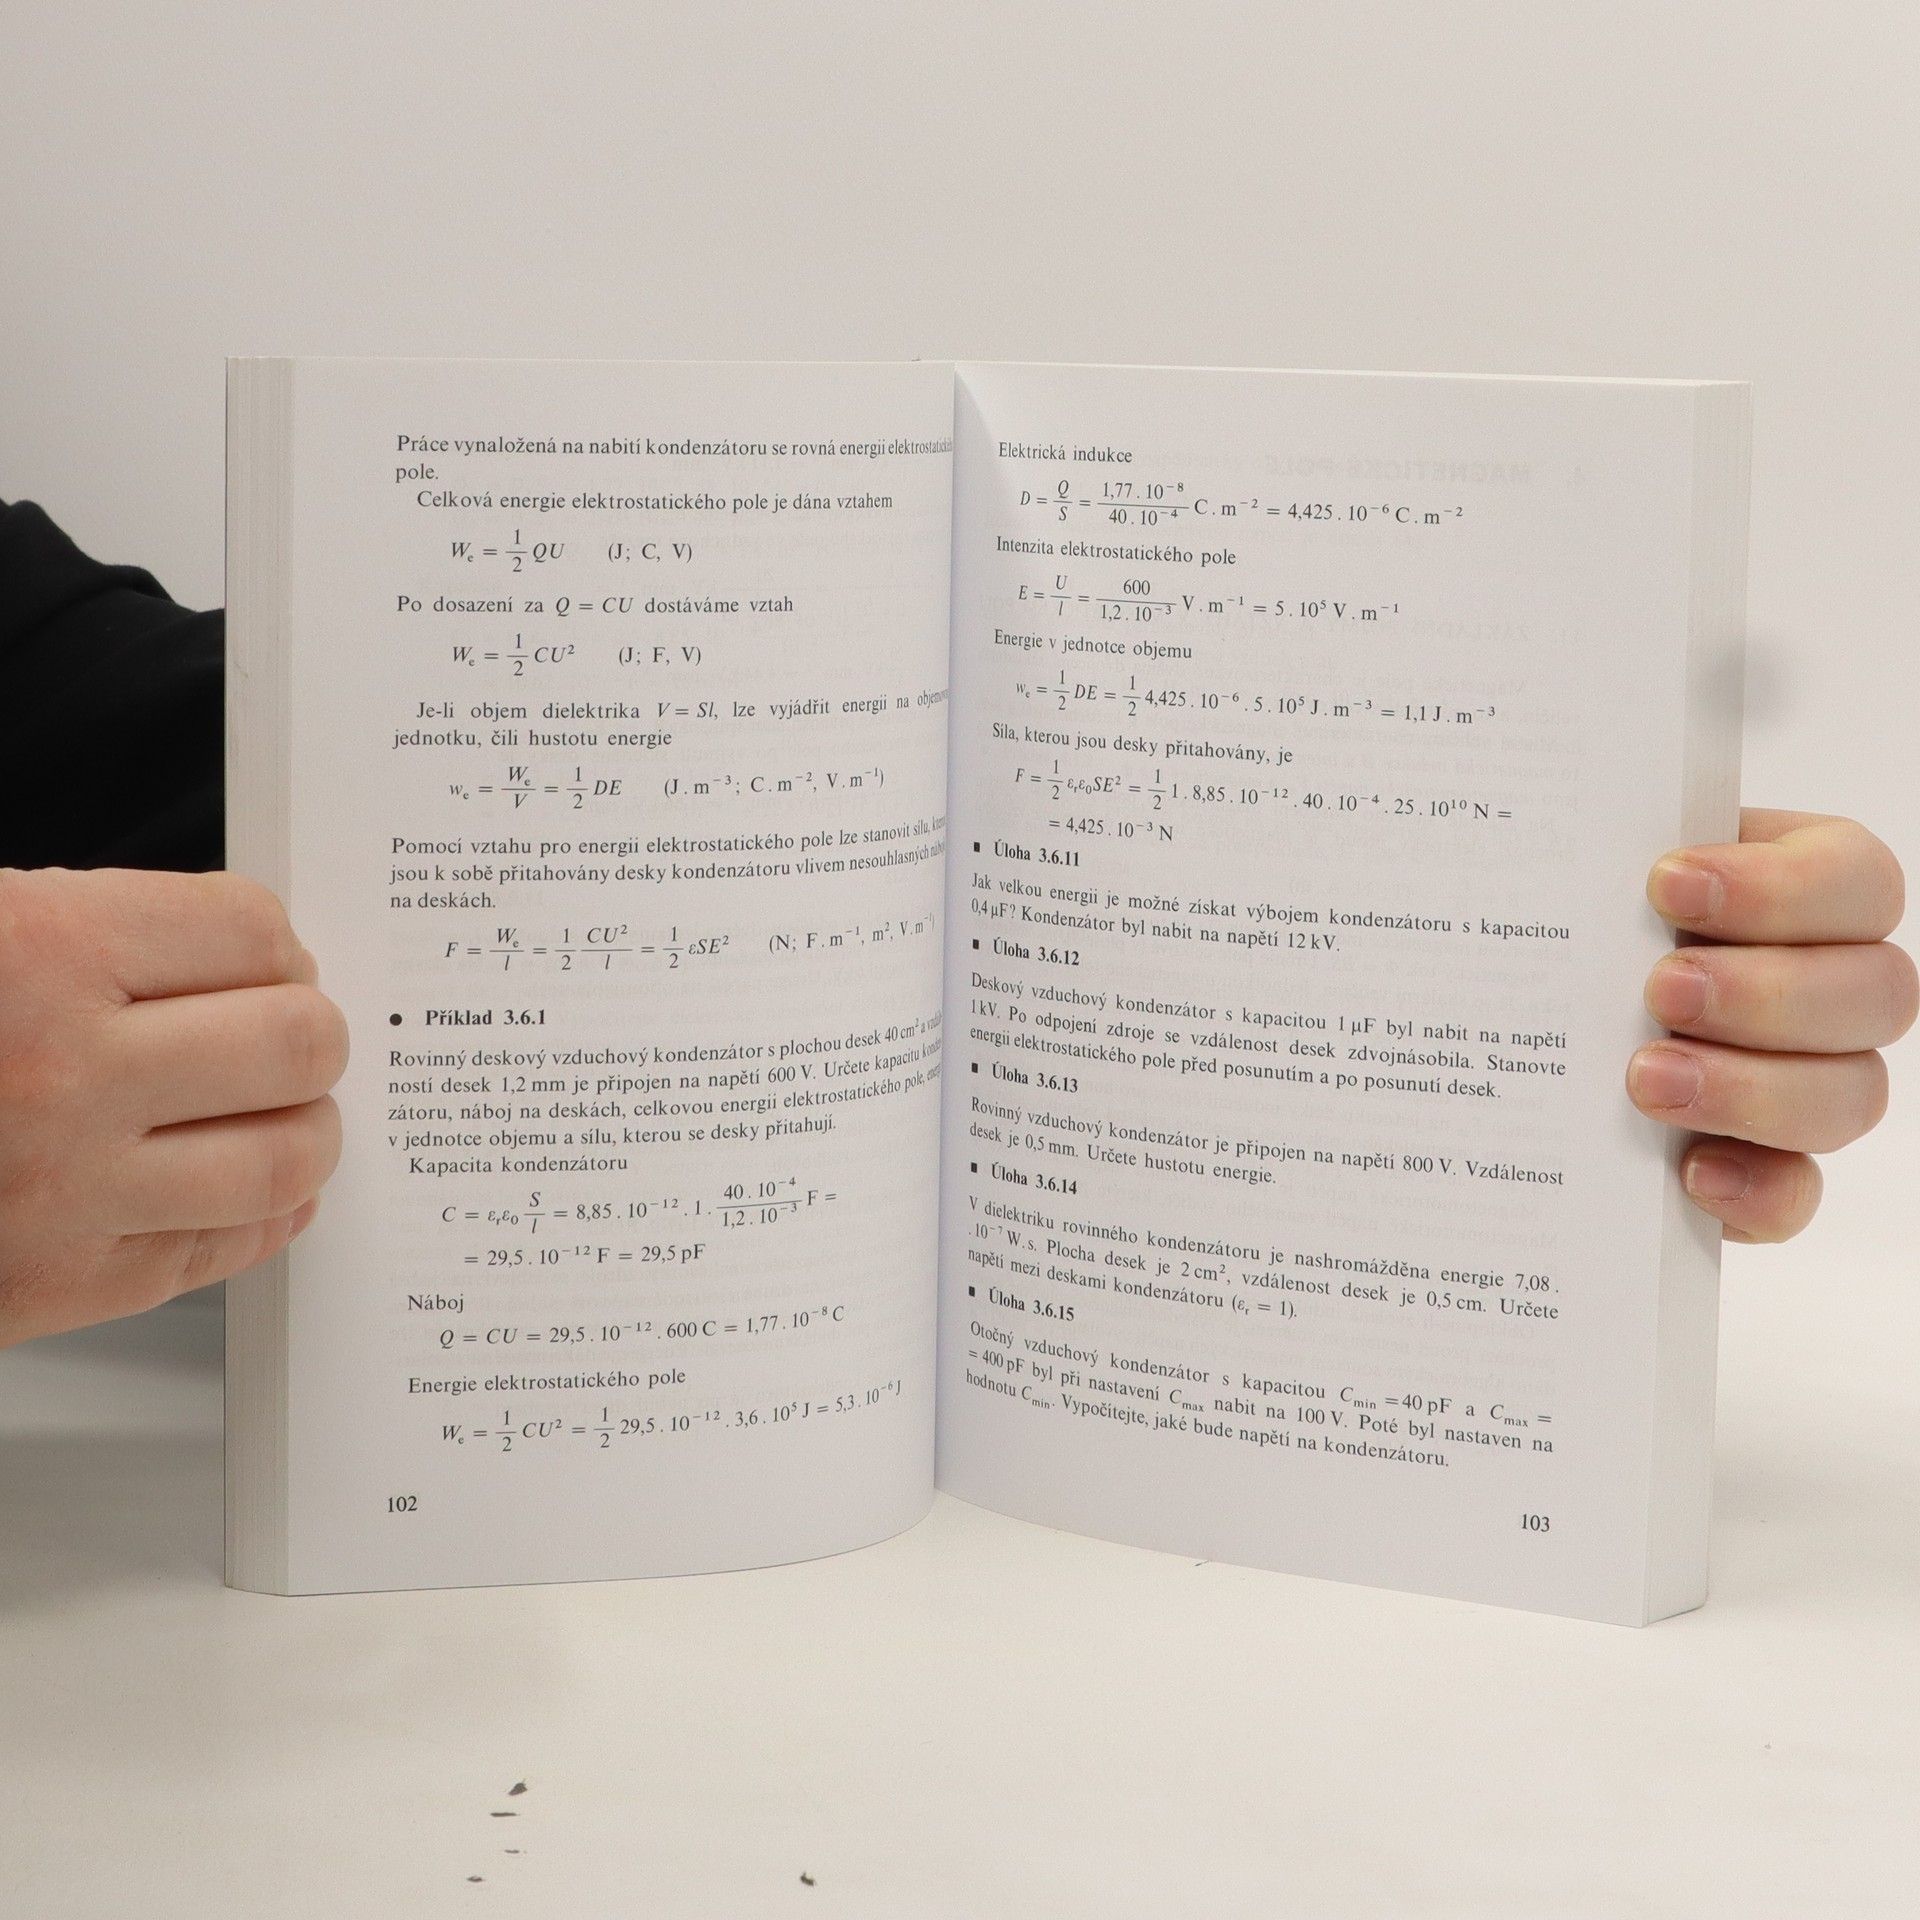 Práce vynaložená na nabití kondenzátoru se rovná energii
pole.
Celková energie elektrostatického pole je dána vztahem
Wₑ = 1/2 QU (J; C, V)
Po dosazení za Q = CU dostáváme vztah
Wₑ = 1/2 CU² (J; F, V)
Je-li objem dielektrika V = Sl, lze vyjádřit energii na
jednotku, čili hustotu energie
wₑ = Wₑ/V = 1/2 DE (J . m⁻³; C . m⁻², V . m⁻¹)
Pomocí vztahu pro energii elektrostatického pole lze stanovit sílu,
jsou k sobě přitahovány desky kondenzátoru vlivem nesouhlasných
na deskách.
F = Wₑ/l = 1/2 CU²/l = 1/2 εSE² (N; F . m⁻¹, m², V . m⁻¹)
● Příklad 3.6.1
Rovinný deskový vzduchový kondenzátor s plochou desek 40 cm² a
ností desek 1,2 mm je připojen na napětí 600 V. Určete kapacitu
zátoru, náboj na deskách, celkovou energii elektrostatického pole,
v jednotce objemu a sílu, kterou se desky přitahují.
Kapacita kondenzátoru
C = εᵣε₀ S/l = 8,85 . 10⁻¹² . 1 . 40 . 10⁻⁴/1,2 . 10⁻³ F =
= 29,5 . 10⁻¹² F = 29,5 pF
Náboj
Q = CU = 29,5 . 10⁻¹² . 600 C = 1,77 . 10⁻⁸ C
Energie elektrostatického pole
Wₑ = 1/2 CU² = 1/2 29,5 . 10⁻¹² . 3,6 . 10⁵ J = 5,3 . 10⁻⁶ J
102
Elektrická indukce
D = Q/S = 1,77 . 10⁻⁸/40 . 10⁻⁴ C . m⁻² = 4,425 . 10⁻⁶ C . m⁻²
Intenzita elektrostatického pole
E = U/l = 600/1,2 . 10⁻³ V . m⁻¹ = 5 . 10⁵ V . m⁻¹
Energie v jednotce objemu
wₑ = 1/2 DE = 1/2 4,425 . 10⁻⁶ . 5 . 10⁵ J . m⁻³ = 1,1 J . m⁻³
Síla, kterou jsou desky přitahovány, je
F = 1/2 εᵣε₀SE² = 1/2 1 . 8,85 . 10⁻¹² . 40 . 10⁻⁴ . 25 . 10¹⁰ N =
= 4,425 . 10⁻³ N
▪ Úloha 3.6.11
Jak velkou energii je možné získat výbojem kondenzátoru s kapacitou
0,4 μF? Kondenzátor byl nabit na napětí 12 kV.
▪ Úloha 3.6.12
Deskový vzduchový kondenzátor s kapacitou 1 μF byl nabit na napětí
1 kV. Po odpojení zdroje se vzdálenost desek zdvojnásobila. Stanovte
energii elektrostatického pole před posunutím a po posunutí desek.
▪ Úloha 3.6.13
Rovinný vzduchový kondenzátor je připojen na napětí 800 V. Vzdálenost
desek je 0,5 mm. Určete hustotu energie.
▪ Úloha 3.6.14
V dielektriku rovinného kondenzátoru je nashromážděna energie 7,08 .
. 10⁻⁷ W . s. Plocha desek je 2 cm², vzdálenost desek je 0,5 cm. Určete
napětí mezi deskami kondenzátoru (εᵣ = 1).
▪ Úloha 3.6.15
Otočný vzduchový kondenzátor s kapacitou Cmin = 40 pF a Cmax =
= 400 pF byl při nastavení Cmax nabit na 100 V. Poté byl nastaven na
hodnotu Cmin. Vypočítejte, jaké bude napětí na kondenzátoru.
103